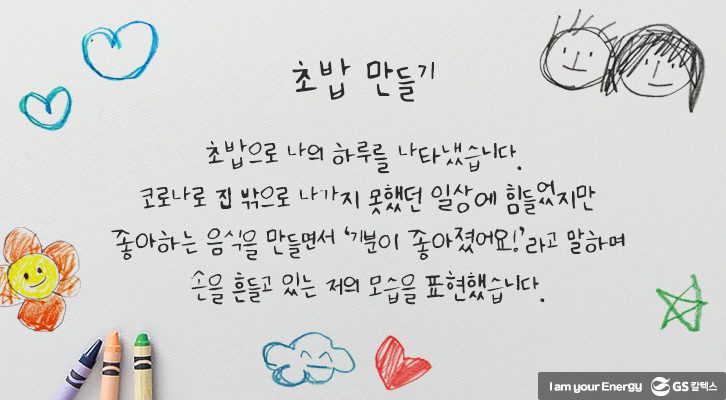 초밥 만들기
초밥으로 나의 하루를 나타냈습니다.
코로나로 집 밖으로 나가지 못했던 일상에 힘들었지만
좋아하는 음식을 만들면서 '기분이 좋아졌어요!'라고 말하며
손을 흔들고 있는 저의 모습을 표현했습니다.
I am your Energy GS칼텍스